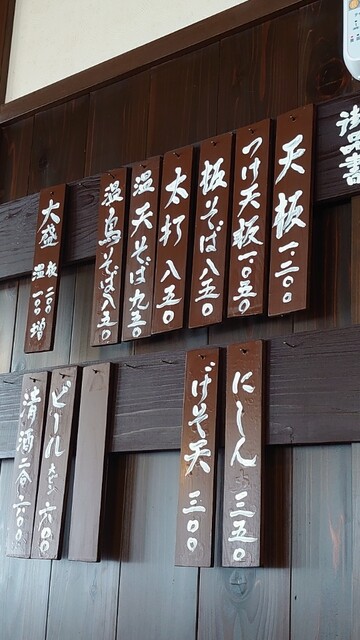 御品書
天板 一、二〇〇
つけ天板 一、〇五〇
板そば 八五〇
太打 八五〇
温天そば 九五〇
温鳥そば 八五〇
大盛 板 二〇〇 温 一〇〇 増
にしん 三五〇
げそ天 三〇〇
ビール 大ビン 六〇〇
清酒 一合 六〇〇